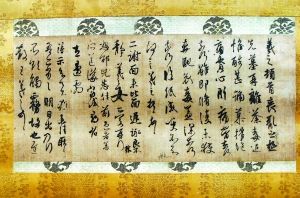 羲之頓首喪亂之極
先墓再離荼毒追
惟酷甚號慕摧絕
痛貫心肝痛當奈何
奈何雖即脩復未獲
奔馳哀毒益深奈何
奈何臨紙感哽不知
何言羲之頓首頓首
二謝面未比面遲詠良
不靜羲之女愛再拜
想邵兒悉佳前患者善
所送議當試尋省
左邊劇
得示知足下猶未佳耿耿
吾亦劣劣明日出乃
行不欲觸霧故也遲
散王羲之頓首